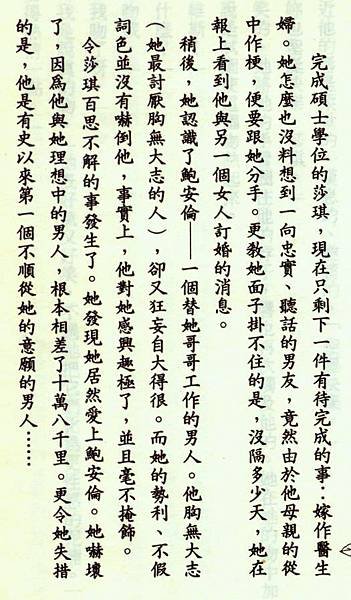 完成碩士學位的莎琪，現在只剩下一件有待完成的事：嫁作醫生
婦。她怎麼也沒料想到一向忠實、聽話的男友，竟然由於他母親的從
中作梗，便要跟她分手。更教她面子掛不住的是，沒隔多少天，她在
報上看到他與另一個女人訂婚的消息。
稍後，她認識了鮑安倫——一個替她哥哥工作的男人。他胸無大志
（她最討厭胸無大志的人），卻又狂妄自大得很。而她的勢利、不假
詞色並沒有嚇倒他，事實上，他對她感興趣極了，並且毫不掩飾。
令莎琪百思不解的事發生了。她發現她居然愛上鮑安倫。她嚇壞
了，因為他與她理想中的男人，根本相差了十萬八千里。更令她失措
的是，他是有史以來第一個不順從她的意願的男人……